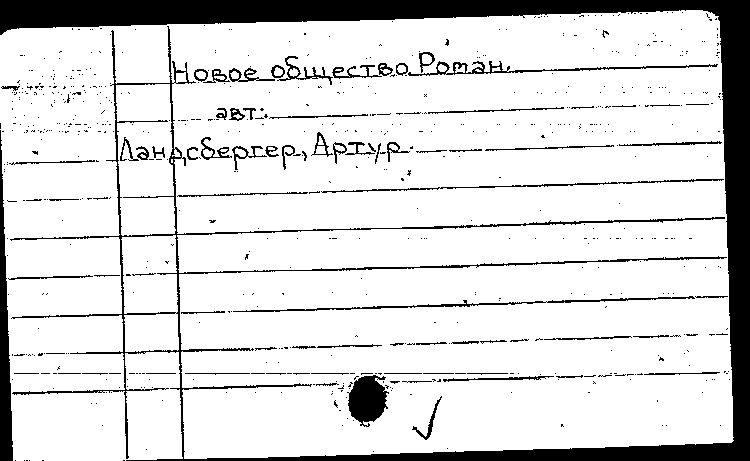 Новое общество. Роман.
авт:
Ландсбергер, Артур.